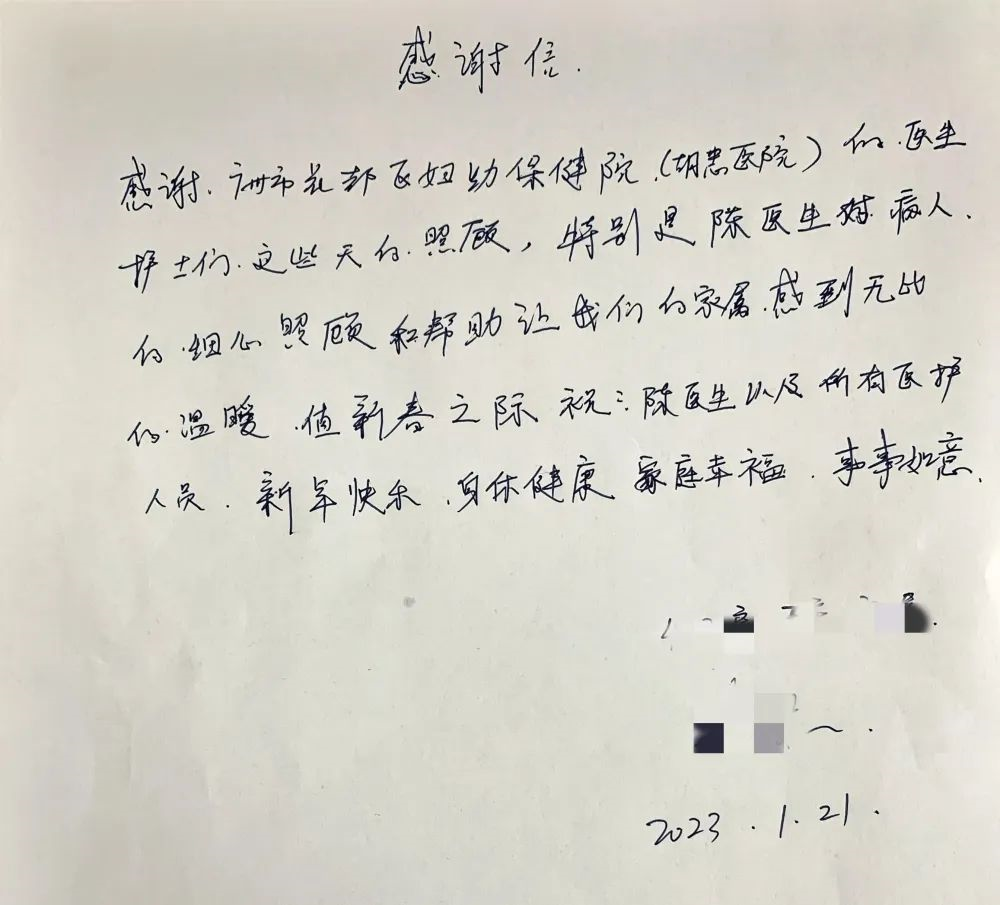 感谢信.
感谢.广州市花都区妇幼保健院.(胡忠医院)的.医生
护士们.这些天的.照顾,特别是陈医生对病人.
的.细心照顾和帮助让我们的家属.感到无比
的.温暖.值新春之际祝:陈医生以及所有医护
人员.新年快乐.身体健康家庭幸福.事事如意.
2023.1.21.